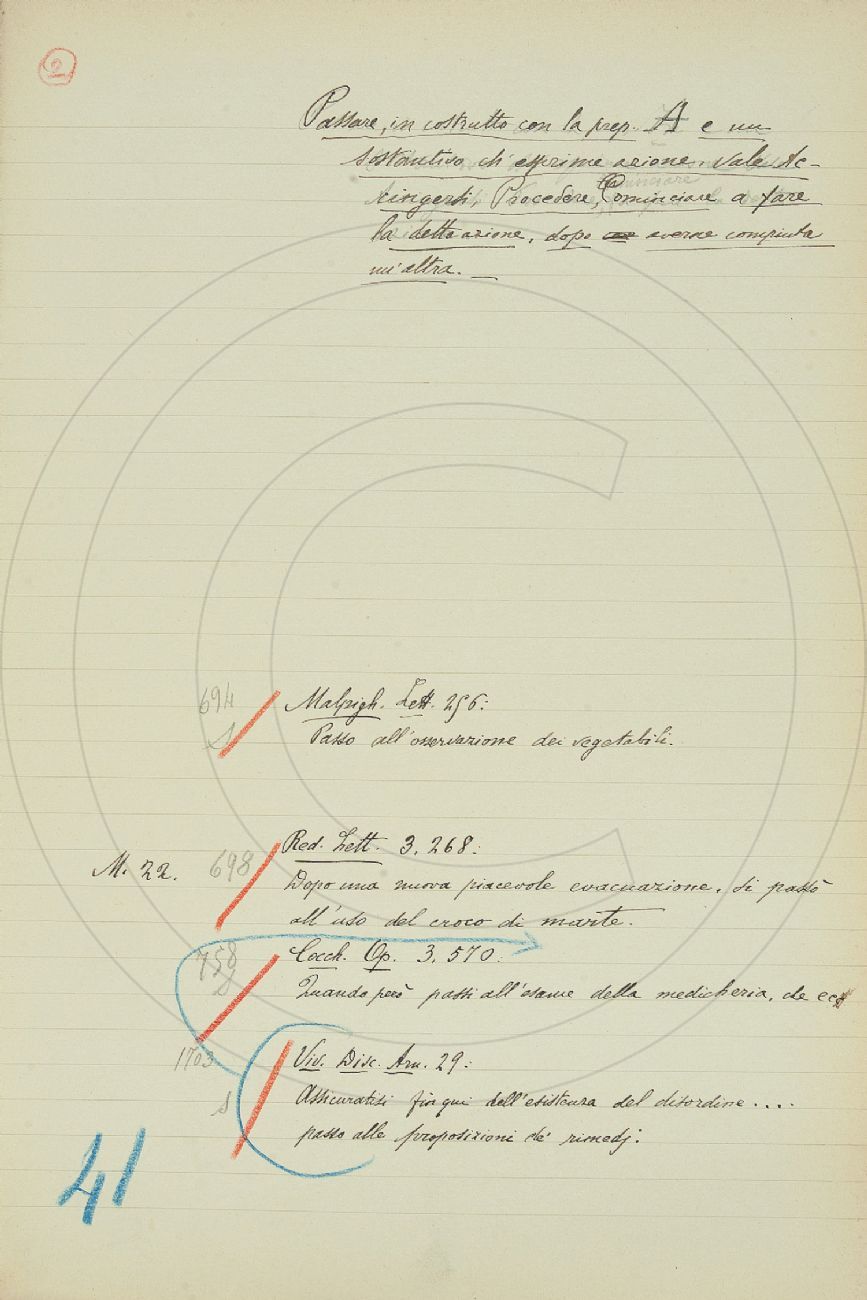 2
Passare, in costrutto con la prep. A e un
sostantivo ch'esprime azione, vale Ac-
cingersi, Procedere, Cominciare a fare
la detta azione, dopo averne compiuta
un'altra. —
694 Malpigh. Lett. 256:
S Passo all'osservazione dei vegetabili.
M. 22. 698 Red. Lett. 3. 268:
Dopo una nuova piacevole evacuazione, si passò
all'uso del croco di marte.
758 Cocch. Op. 3. 570:
Quando però passi all'esame della medicheria, che ecc
1703 Viv. Disc. Arn. 29:
S Assicuratisi fin qui dell'esistenza del disordine....
passo alle proposizioni de' rimedj.
41